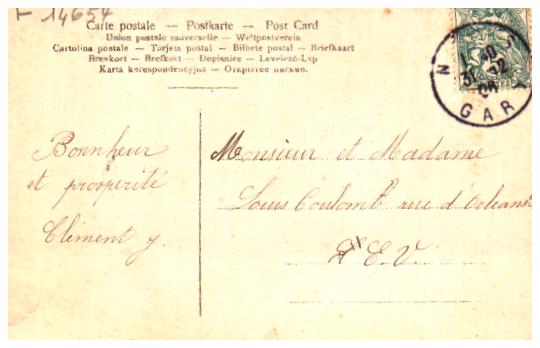 14654
Carte postale — Postkarte — Post Card
Union postale universelle — Weltpostverein
Cartolina postale — Tarjeta postal — Bilhete postal — Briefkaart
Brevkort — Brefkort — Dopisnice — Levelező-Lap
Karta korespondencyjna — Открытое письмо.
GAR
Bonnheur
et prosperité
Clément J.
Monsieur et Madame
Louis Coulomb rue d'Orléans
E. V.